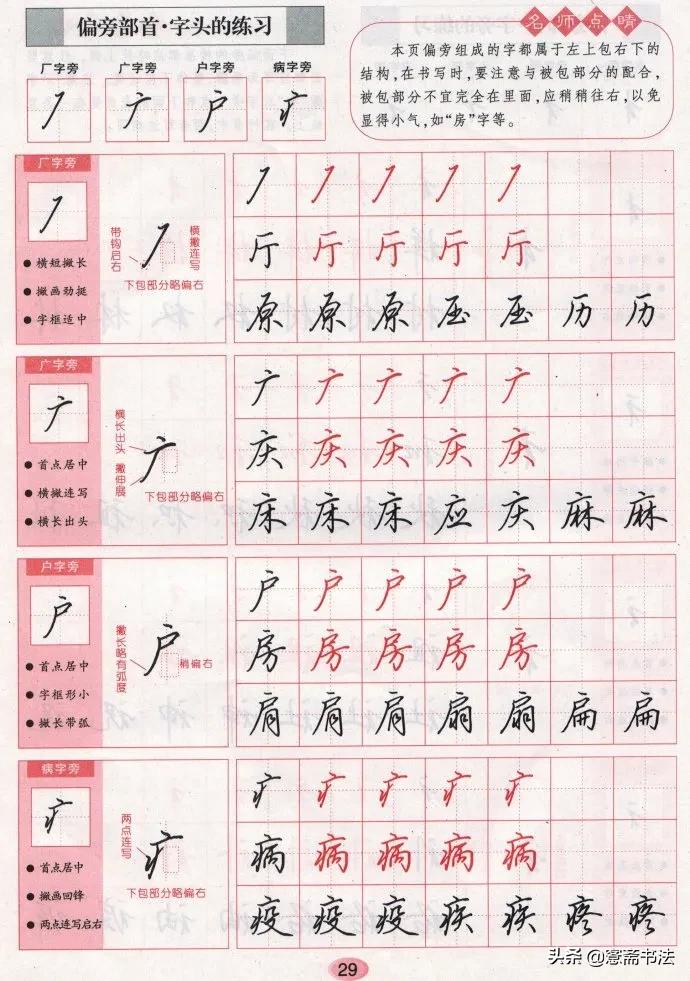 偏旁部首·字头的练习
厂字旁 广字旁 户字旁 病字旁
厂 广 户 疒
名师点睛
本页偏旁组成的字都属于左上包右下的
结构,在书写时,要注意与被包部分的配合,
被包部分不宜完全在里面,应稍稍往右,以免
显得小气,如“房”字等。
厂字旁
厂
●横短撇长
●撇画劲挺
●字框适中
带钩启右
厂
横撇连写
下包部分略偏右
厂 厂 厂 厂 厂
厅 厅 厅 厅 厅
原 原 原 压 压 历 历
广字旁
广
●首点居中
●横撇连写
●横长出头
横长出头
撇伸展
广
下包部分略偏右
广 广 广 广 广
庆 庆 庆 庆 庆
床 床 床 应 庆 麻 麻
户字旁
户
●首点居中
●字框形小
●撇长带弧
撇长略有弧度
户
稍偏右
户 户 户 户 户
房 房 房 房 房
肩 肩 肩 扇 扇 扁 扁
病字旁
疒
●首点居中
●撇画回锋
●两点连写启右
两点连写
疒
下包部分略偏右
疒 疒 疒 疒 疒
病 病 病 病 病
疫 疫 疫 疾 疾 疼 疼
29
头条@鸾斋书法